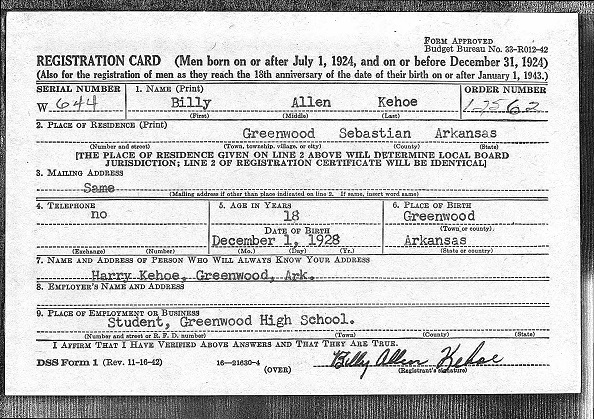 FORM APPROVED
Budget Bureau No. 33-R012-42
REGISTRATION CARD (Men born on or after July 1, 1924, and on or before December 31, 1924)
(Also for the registration of men as they reach the 18th anniversary of the date of their birth on or after January 1, 1943.)
SERIAL NUMBER 1. NAME (Print) ORDER NUMBER
W 644 Billy Allen Kehoe 17562
(First) (Middle) (Last)
2. PLACE OF RESIDENCE (Print)
Greenwood Sebastian Arkansas
(Number and street) (Town, township, village, or city) (County) (State)
[THE PLACE OF RESIDENCE GIVEN ON LINE 2 ABOVE WILL DETERMINE LOCAL BOARD
JURISDICTION; LINE 2 OF REGISTRATION CERTIFICATE WILL BE IDENTICAL]
3. MAILING ADDRESS
Same
(Mailing address if other than place indicated on line 2. If same, insert word same)
4. TELEPHONE 5. AGE IN YEARS 6. PLACE OF BIRTH
no 18 Greenwood
DATE OF BIRTH (Town or county)
December 1, 1928 Arkansas
(Exchange) (Number) (Mo.) (Day) (Yr.) (State or country)
7. NAME AND ADDRESS OF PERSON WHO WILL ALWAYS KNOW YOUR ADDRESS
Harry Kehoe, Greenwood, Ark.
8. EMPLOYER'S NAME AND ADDRESS
9. PLACE OF EMPLOYMENT OR BUSINESS
Student, Greenwood High School.
(Number and street or R. F. D. number) (Town) (County) (State)
I AFFIRM THAT I HAVE VERIFIED ABOVE ANSWERS AND THAT THEY ARE TRUE.
DSS Form 1 (Rev. 11-16-42) 16—21630-4 Billy Allen Kehoe
(OVER) (Registrant's signature)